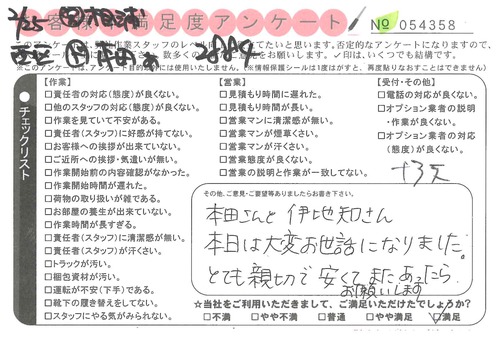 お客様満足度アンケート
No 054358
2/25
このアンケートは、
作業スタッフのレベル向上
たいと思います。否定的なアンケートになりますので、
お願いします。✓印は、いくつでも結構です。
※このアンケートは、アンケート目的以外には使用いたしません。(※情報保護シールは1度はがすと、再度貼りなおすことはできません)
チェックリスト
【作業】
□責任者の対応(態度)が良くない。
□他のスタッフの対応(態度)が良くない。
□作業を見ていて不安がある。
□責任者(スタッフ)に好感が持てない。
□お客様への挨拶が出来ていない。
□ご近所への挨拶・気遣いが無い。
□作業開始前の内容確認がなかった。
□作業開始時間が遅れた。
□荷物の取り扱いが雑である。
□お部屋の養生が出来ていない。
□作業時間が長すぎる。
□責任者(スタッフ)に清潔感が無い。
□責任者(スタッフ)が汗くさい。
□トラックが汚い。
□梱包資材が汚い。
□運転が不安(下手)である。
□靴下の履き替えをしてない。
□スタッフにやる気がみられない。
【営業】
□見積もり時間に遅れた。
□見積もり時間が長い。
□営業マンに清潔感が無い。
□営業マンが煙草くさい。
□営業マンが汗くさい。
□営業態度が良くない。
□営業の説明と作業が一致してない。
【受付・その他】
□電話の対応が良くない。
□オプション業者の説明
・作業が良くない。
□オプション業者の対応
(態度)が良くない。
その他、ご意見・ご要望等ありましたらお書き下さい。
本田さんと伊地知さん
本日は大変お世話になりました。
とても親切で安くてまたあったら
お願いします
☆当社をご利用いただきまして、ご満足いただけたでしょうか?
□不満 □やや不満 □普通 □やや満足 ☑満足